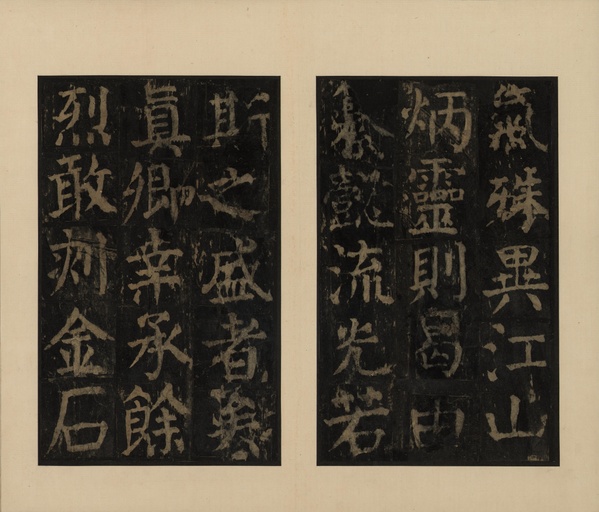 殊異江山
炳靈則曷由
纂懿流光若
斯之盛者矣
真卿幸承餘
烈敢刻金石